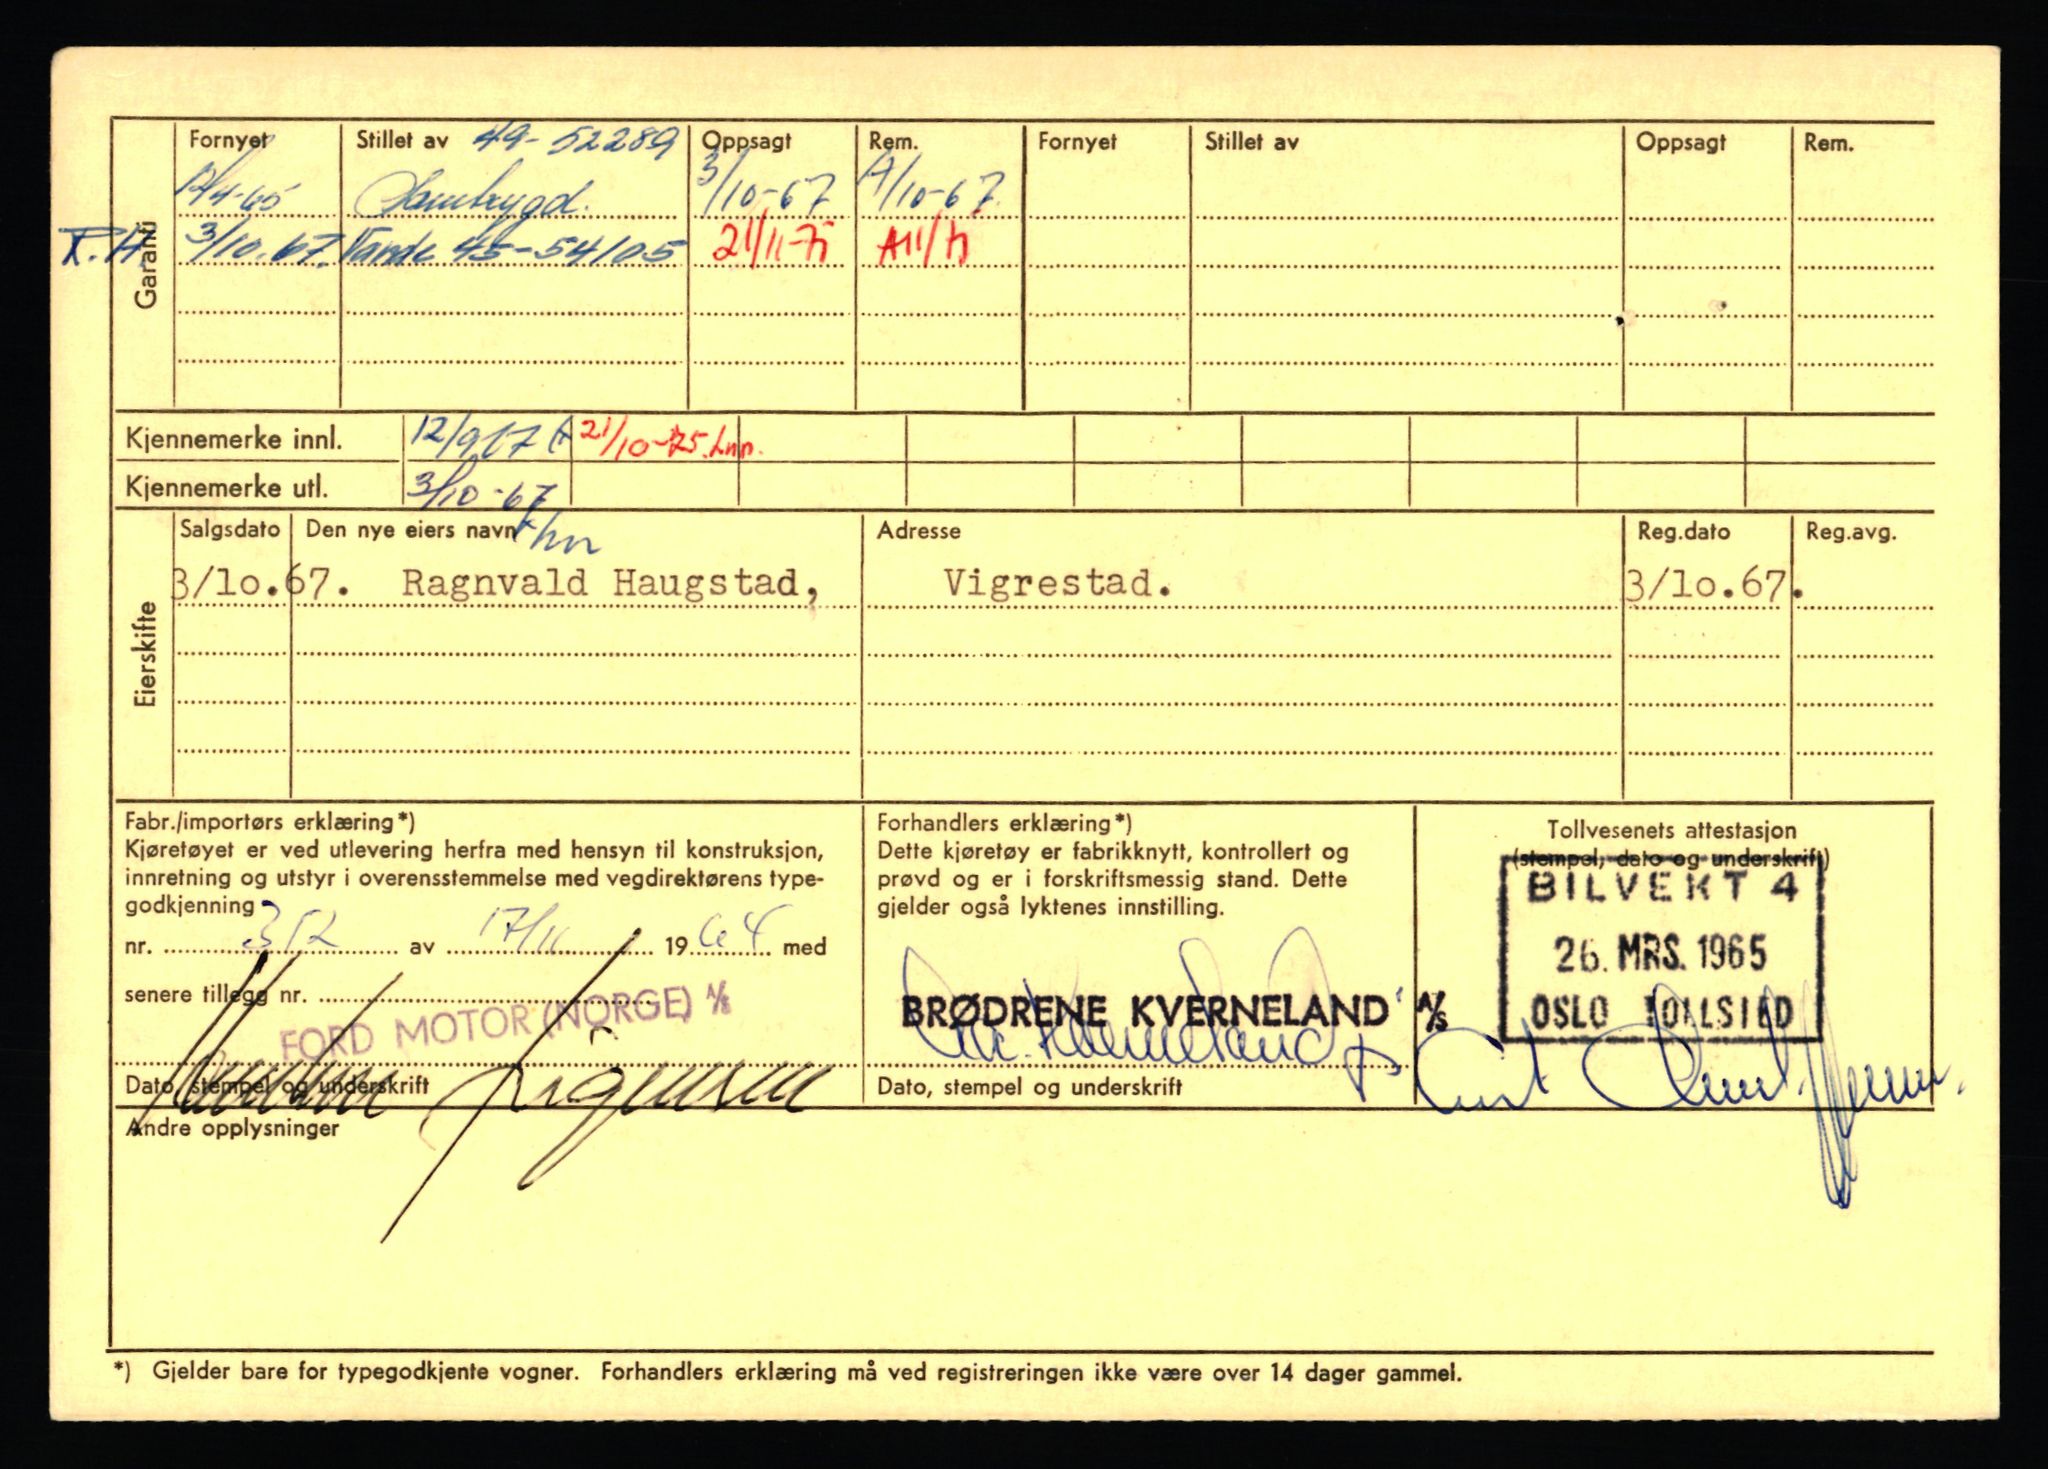 Fornyet Stillet av 49-52289 Oppsagt Rem. Fornyet Stillet av Oppsagt Rem.
Samtrygd. 3/10-67 A/10-67.
Garanti
3/10.67. Varde 45-54105 21/11-75 A11/75
Kjennemerke innl. 12/9 67 21/10-75. Lnn.
Kjennemerke utl. 3/10-67
Eierskifte
Salgsdato Den nye eiers navn Adresse Reg.dato Reg.avg.
3/10.67. Ragnvald Haugstad, Vigrestad. 3/10.67.
Fabr./importørs erklæring*)
Kjøretøyet er ved utlevering herfra med hensyn til konstruksjon,
innretning og utstyr i overensstemmelse med vegdirektørens type-
godkjenning
nr. 352 av 17/11 1964 med
senere tillegg nr.
FORD MOTOR (NORGE) A/S
Dato, stempel og underskrift
Forhandlers erklæring*)
Dette kjøretøy er fabrikknytt, kontrollert og
prøvd og er i forskriftsmessig stand. Dette
gjelder også lyktenes innstilling.
BRØDRENE KVERNELAND A/S
Dato, stempel og underskrift
Tollvesenets attestasjon
(stempel, dato og underskrift)
BILVEKT 4
26. MRS. 1965
OSLO TOLLSTED
Andre opplysninger
*) Gjelder bare for typegodkjente vogner. Forhandlers erklæring må ved registreringen ikke være over 14 dager gammel.